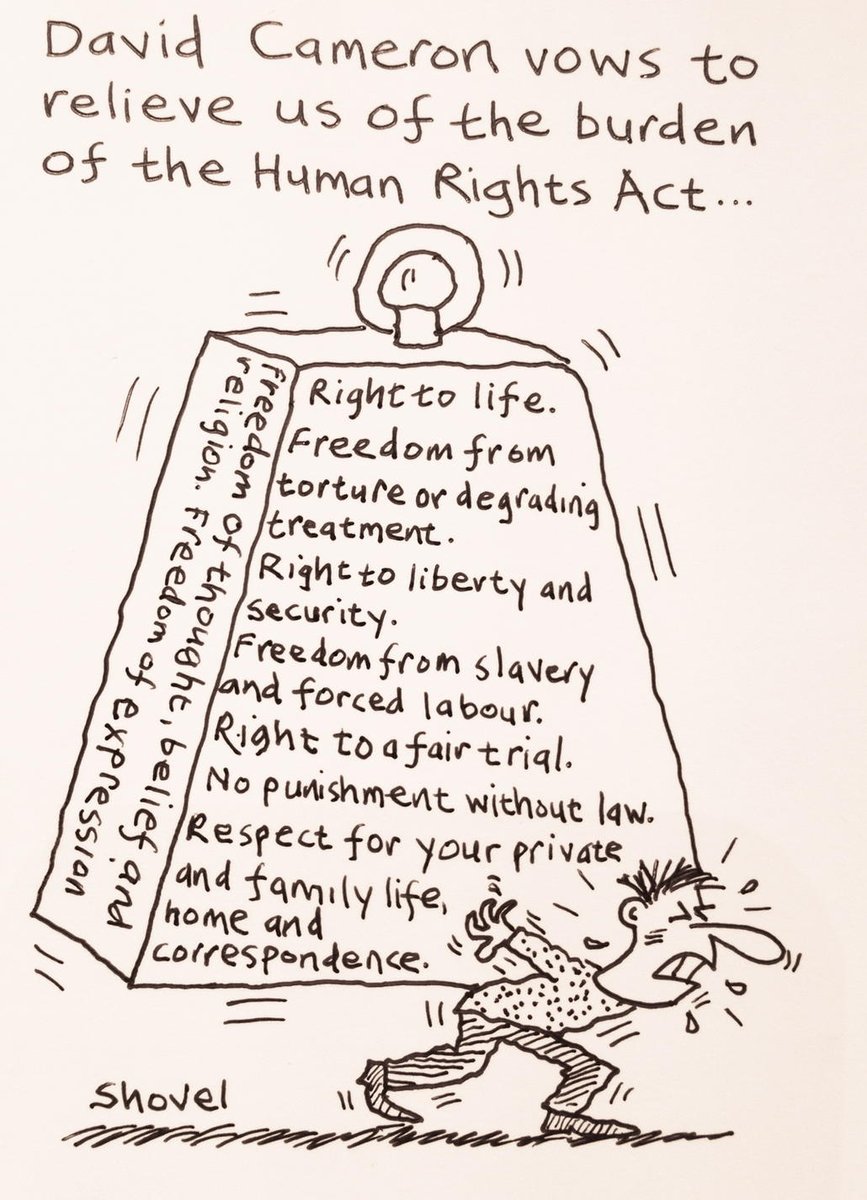 David Cameron vows to
relieve us of the burden
of the Human Rights Act...
Freedom of thought, belief and
religion. Freedom of expression
Right to life.
Freedom from
torture or degrading
treatment.
Right to liberty and
security.
Freedom from slavery
and forced labour.
Right to a fair trial.
No punishment without law.
Respect for your private
and family life,
home and
correspondence.
Shovel